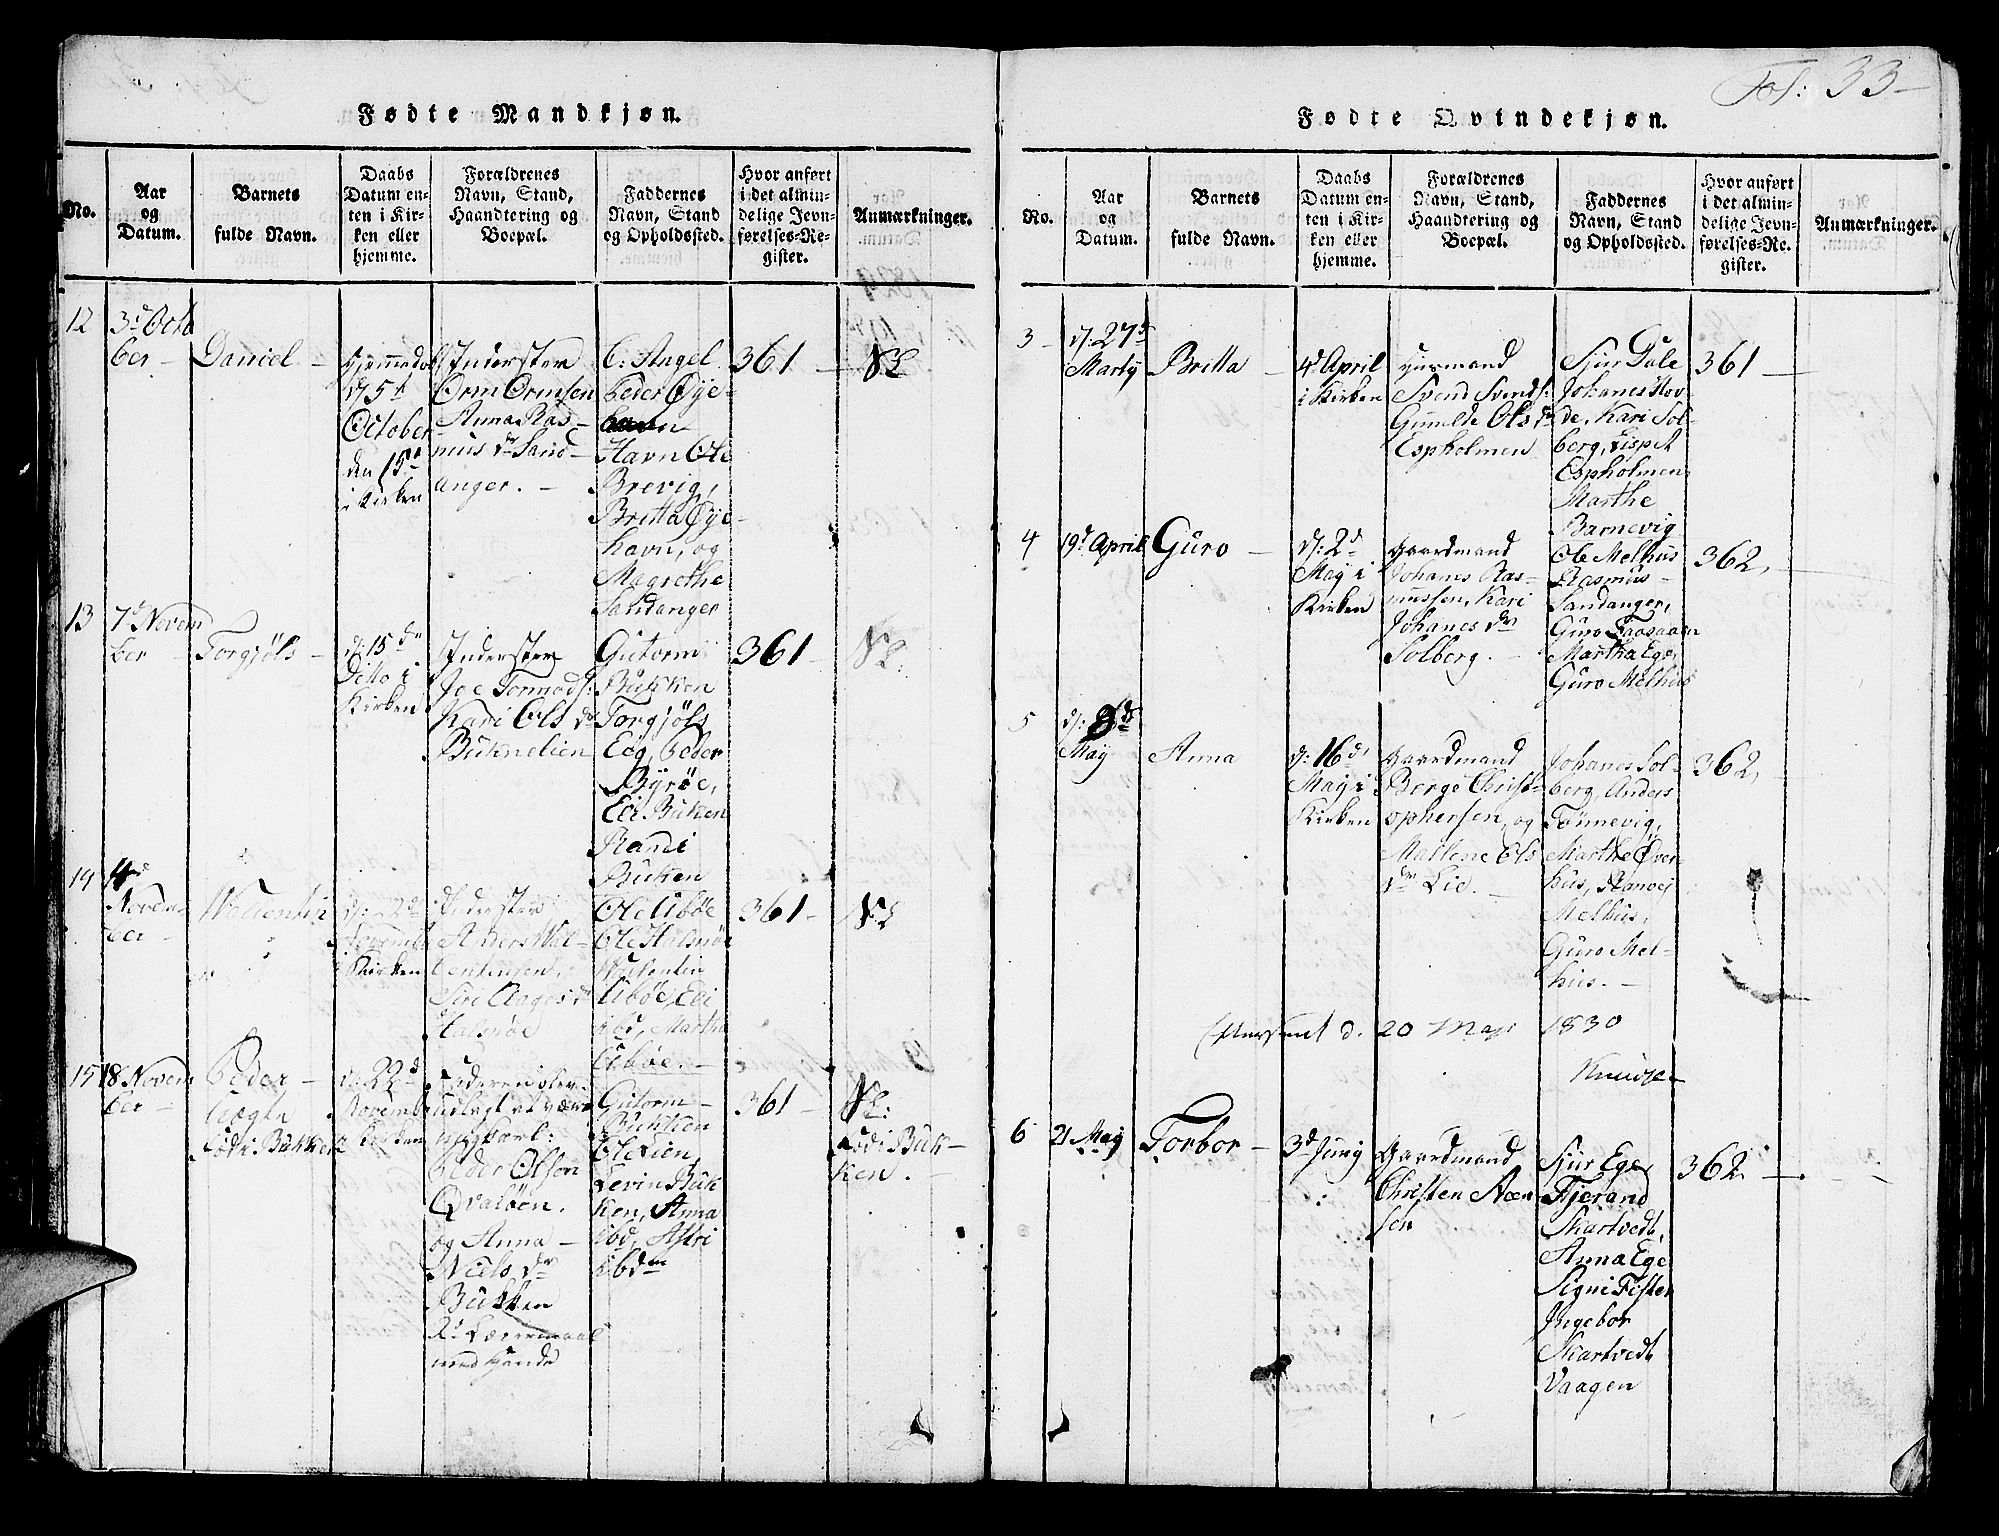 Fol: 33
Fødte Mandkjøn.
No.
Aar
og
Datum.
Barnets
fulde Navn.
Daabs
Datum en-
ten i Kir-
ken eller
hjemme.
Forældrenes
Navn, Stand,
Haandtering og
Boepæl.
Faddernes
Navn, Stand
og Opholdssted.
Hvor anført
i det almin-
delige Jevn-
førelses-Re-
gister.
Anmærkninger.
12
3d Octo
ber
Daniel
Hjemmedøbt
d 5t
October
den 15d
i Kirken
Inderster
Orm Ormsen
Anna Ras-
mus dr Sand-
anger.
C: Angel
Peder Øye-
Havn Ole
Brevig,
Britta Øye-
havn, og
Magrethe
Sandanger
361
13
7d Novem
ber
Torgjöls
d: 15de
Ditto i
Kirken
Inderster
Joe Tormods:
Kari Ols dr
Büknelien
Gutorm
Bükken
Torgjöls
Eeg, Peder
Byröe,
Eli Büken
Randi
Büken
361
14
Novem-
ber
Wallentin
d: 22d
Novemb
i Kirken
Inderster
Anders Wal-
lentinsen,
Siri Aages dr
Halsnöe
Ole Uböe
Ole Halsnöe
Wallentin
Uböe, Edi
ibd, Martha
Uböe.
361
15
18 Novem
ber
Peder
Uægte
Fød i Bükken
d 22d
Novemb
i Kirken
Faderen blev
udlagt at være
ungkarl:
Peder Olson
Qvalöen.
og Anna
Niels dr
Bükken
2d Leiermaal
med hende
Gutorm
Bükken
Ole Lien,
Levin Bük
ken, Anna
ibd, Astri
ibdm
361
Fød i Bük-
ken.
Fødte Qvindekjøn.
No.
Aar
og
Datum.
Barnets
fulde Navn.
Daabs
Datum en-
ten i Kir-
ken eller
hjemme.
Forældrenes
Navn, Stand,
Haandtering og
Boepæl.
Faddernes
Navn, Stand
og Opholdssted.
Hvor anført
i det almin-
delige Jevn-
førelses-Re-
gister.
Anmærkninger.
3
d: 27d
Marty
Britta
4d April
i Kirken
Husmand
Svend Svends:
Gunilde Ols dr
Espholmen
Sjur Dale
Johanes Hov-
de, Kari Sol-
berg, Lispet
Espholmen
Marthe
Barnevig
361
4
19d April
Guro
d: 2d
May i
Kirken
Gaardmand
Johanes Ras-
mussen, Kari
Johanes dr
Solberg.
Ole Melhus
Rasmus
Sandanger,
Guro
Martha Ege,
Guro Melhus
362
5
d: 8d
May
Anna
d: 16d
May i
Kirken
Gaardmand
Børge Christ-
ophersen, og
Mallene Ols
dr Lie.
Johanes Sol-
berg, Anders
Tönnevig,
Marthe Över-
hus, Ranvei
Melhus,
Guro Mel-
hus.
362
d. 20 May 1830
Knudsen
6
21 May
Torbor
3d Juny
Gaardmand
Christen Aaen-
sen
Sjur Ege
Tjerand
Skartvedt,
Anna Ege
Signi Fister
Ingebor
Skartvedt
Vaagen
362